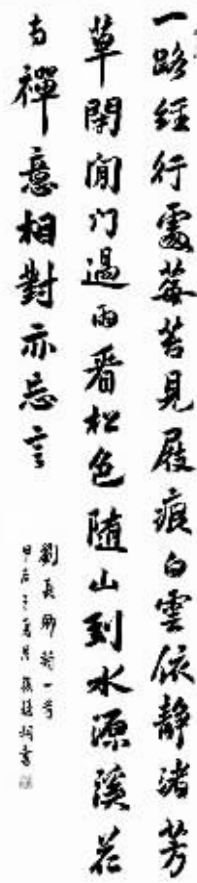 一路經行處莓苔見屐痕白雲依靜渚芳
草閉閒门過雨看松色隨山到水源溪花
与禪意相對亦忘言
劉長卿詩一首